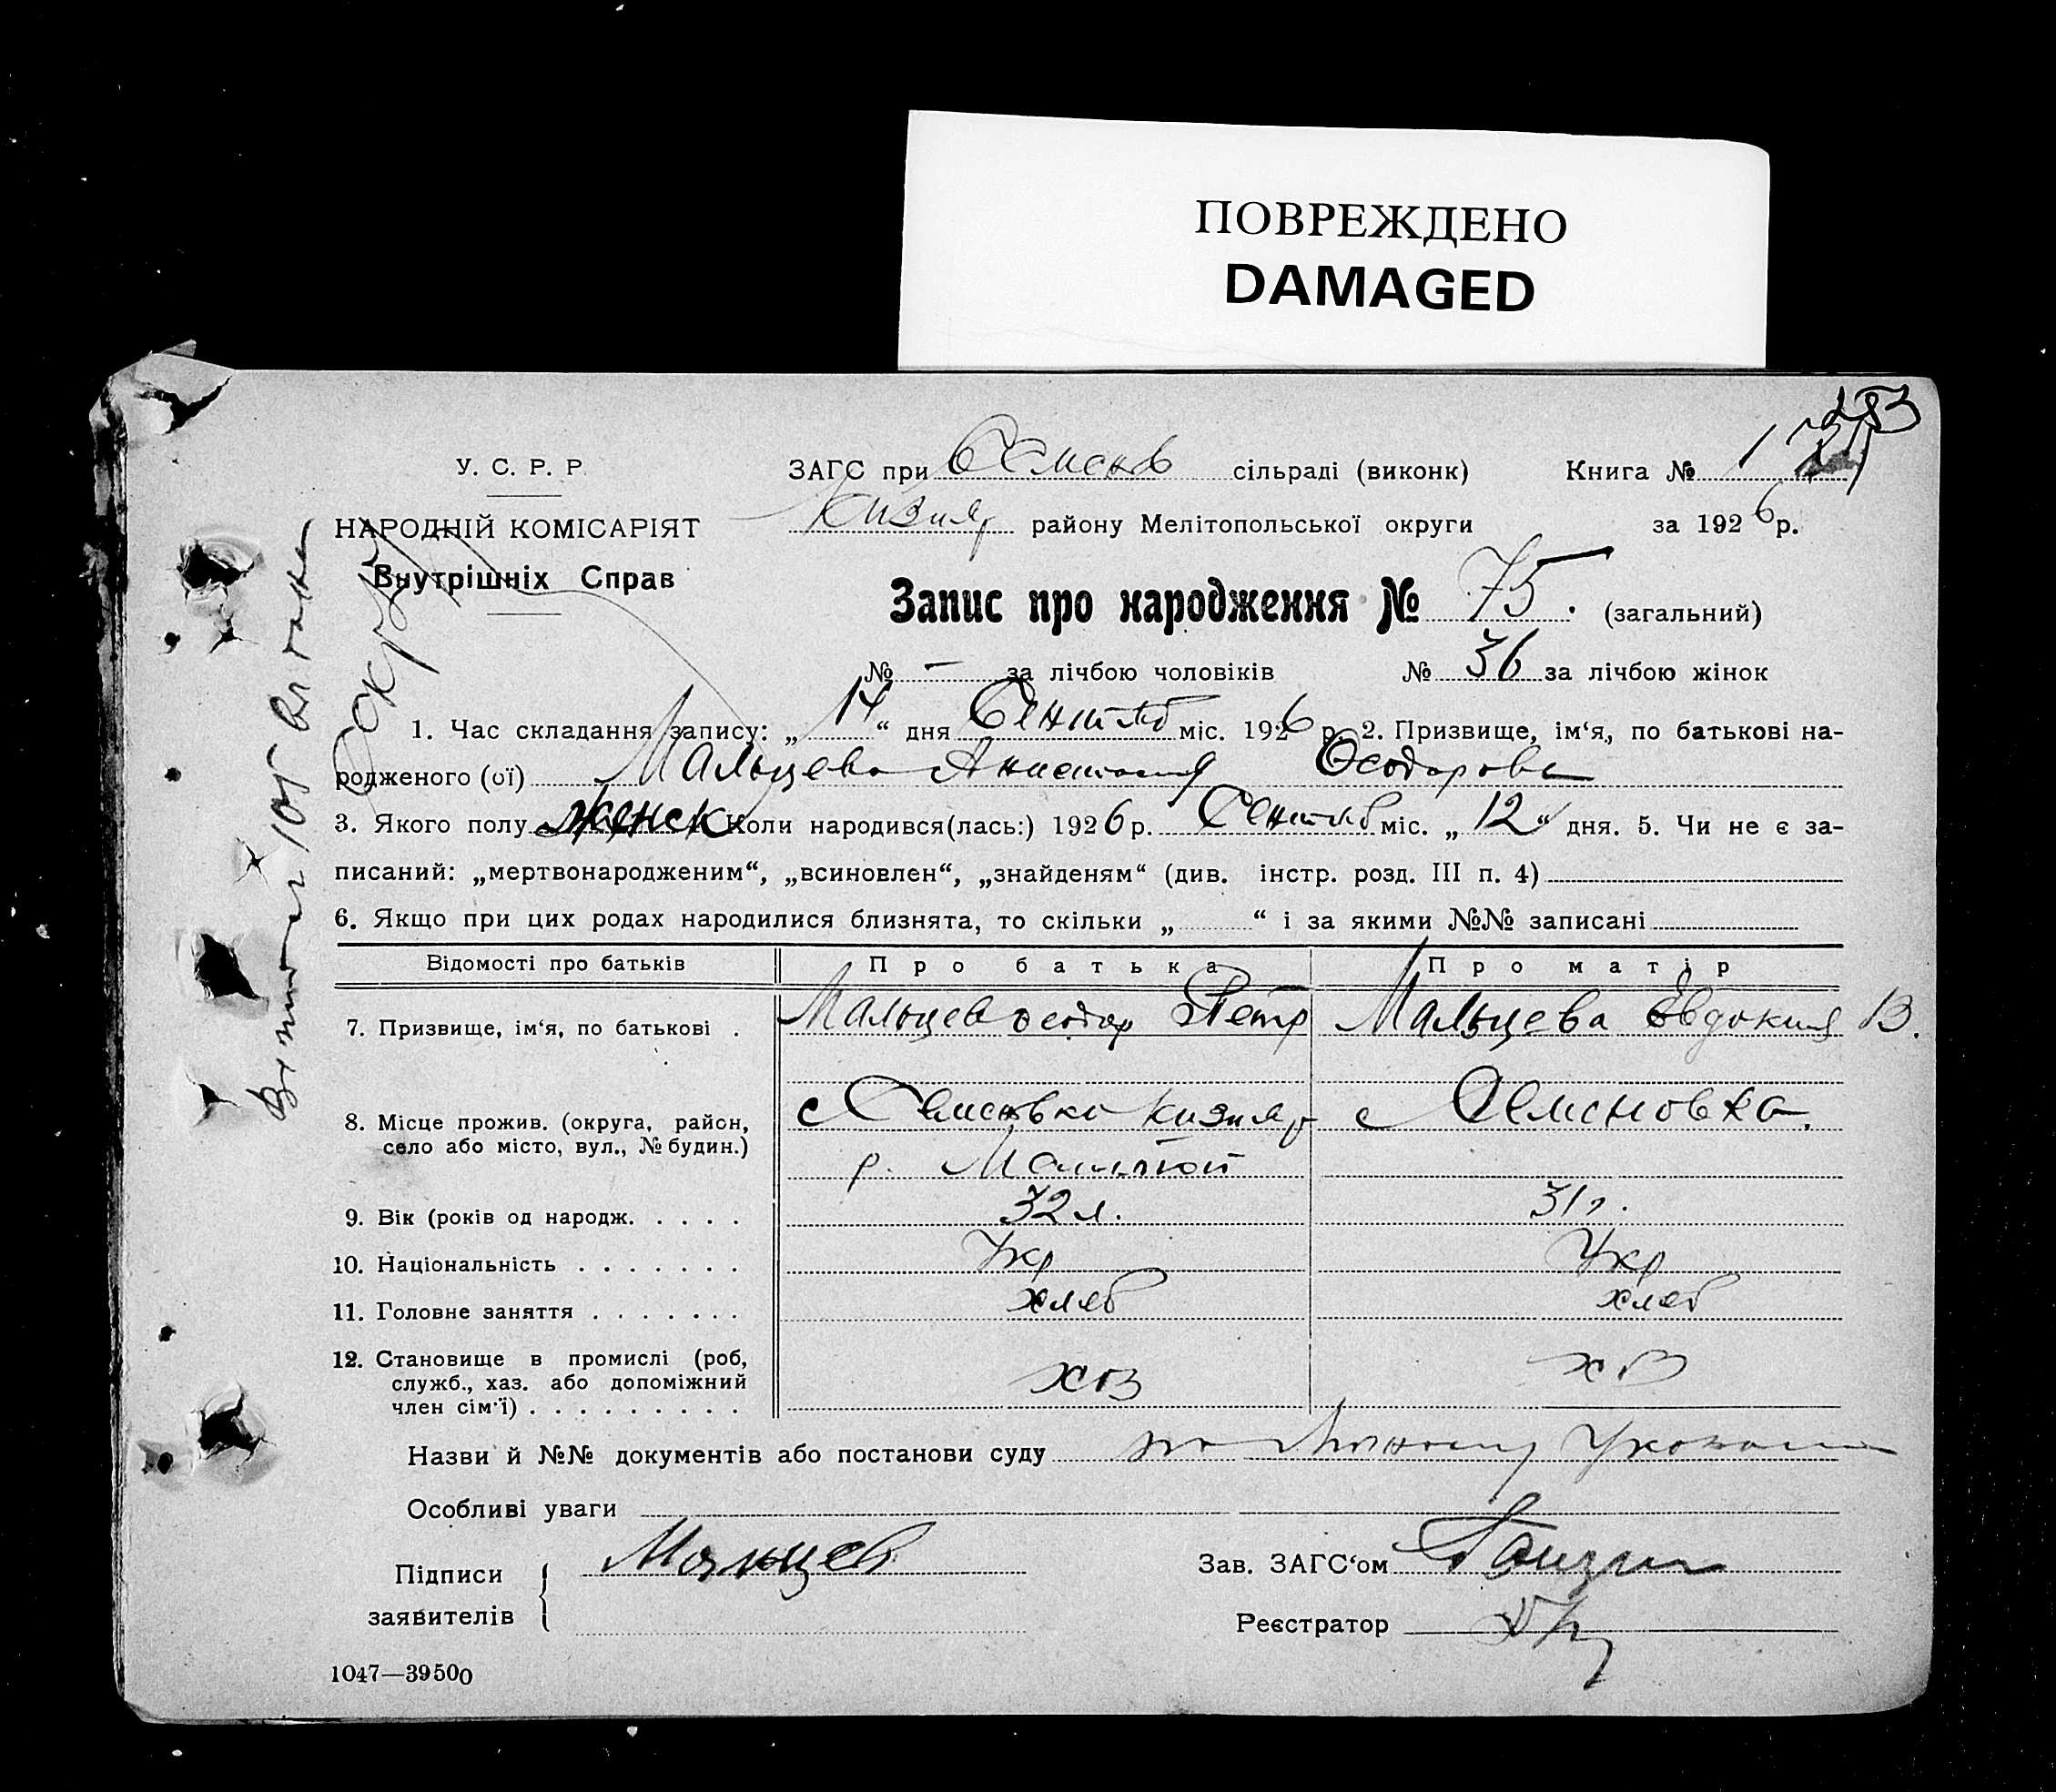 ПОВРЕЖДЕНО
DAMAGED
У. С. Р. Р.
ЗАГС при Семенов сільраді (виконк)
Книга № 1
НАРОДНІЙ КОМІСАРІЯТ
Кизияр району Мелітопольської округи
за 1926 р.
Внутрішніх Справ
Запис про народження № 75. (загальний)
№ — за лічбою чоловіків № 36 за лічбою жінок
1. Час складання запису: „ 14 “ дня Сентяб міс. 1926 р. 2. Призвище, ім‘я, по батькові на-
родженого (ої) Мальцева Анастасия Феодорова
3. Якого полу женск Коли народився(лась:) 1926 р. Сентяб міс. „ 12 “ дня. 5. Чи не є за-
писаний: „мертвонародженим“, „всиновлен“, „знайденям“ (див. інстр. розд. III п. 4)
6. Якщо при цих родах народилися близнята, то скільки „ “ і за якими №№ записані
Відомості про батьків Про батька Про матір
7. Призвище, ім‘я, по батькові . Мальцев Феодор Петр Мальцева Евдокия В.
8. Місце прожив. (округа, район, с Семеновка Кизияр с Семеновка.
село або місто, вул., № будин.) р.
9. Вік (років од народж. . . . . 32 л. 31 г.
10. Національність . . . . . . . Укр Укр
11. Головне заняття . . . . . . . хлеб хлеб
12. Становище в промислі (роб,
служб., хаз. або допоміжний хоз хоз
член сім‘ї) . . . . . . . . .
Назви й №№ документів або постанови суду
Особливі уваги
Підписи Мальцев
Зав. ЗАГС‘ом
заявителів
Реєстратор
1047—39500